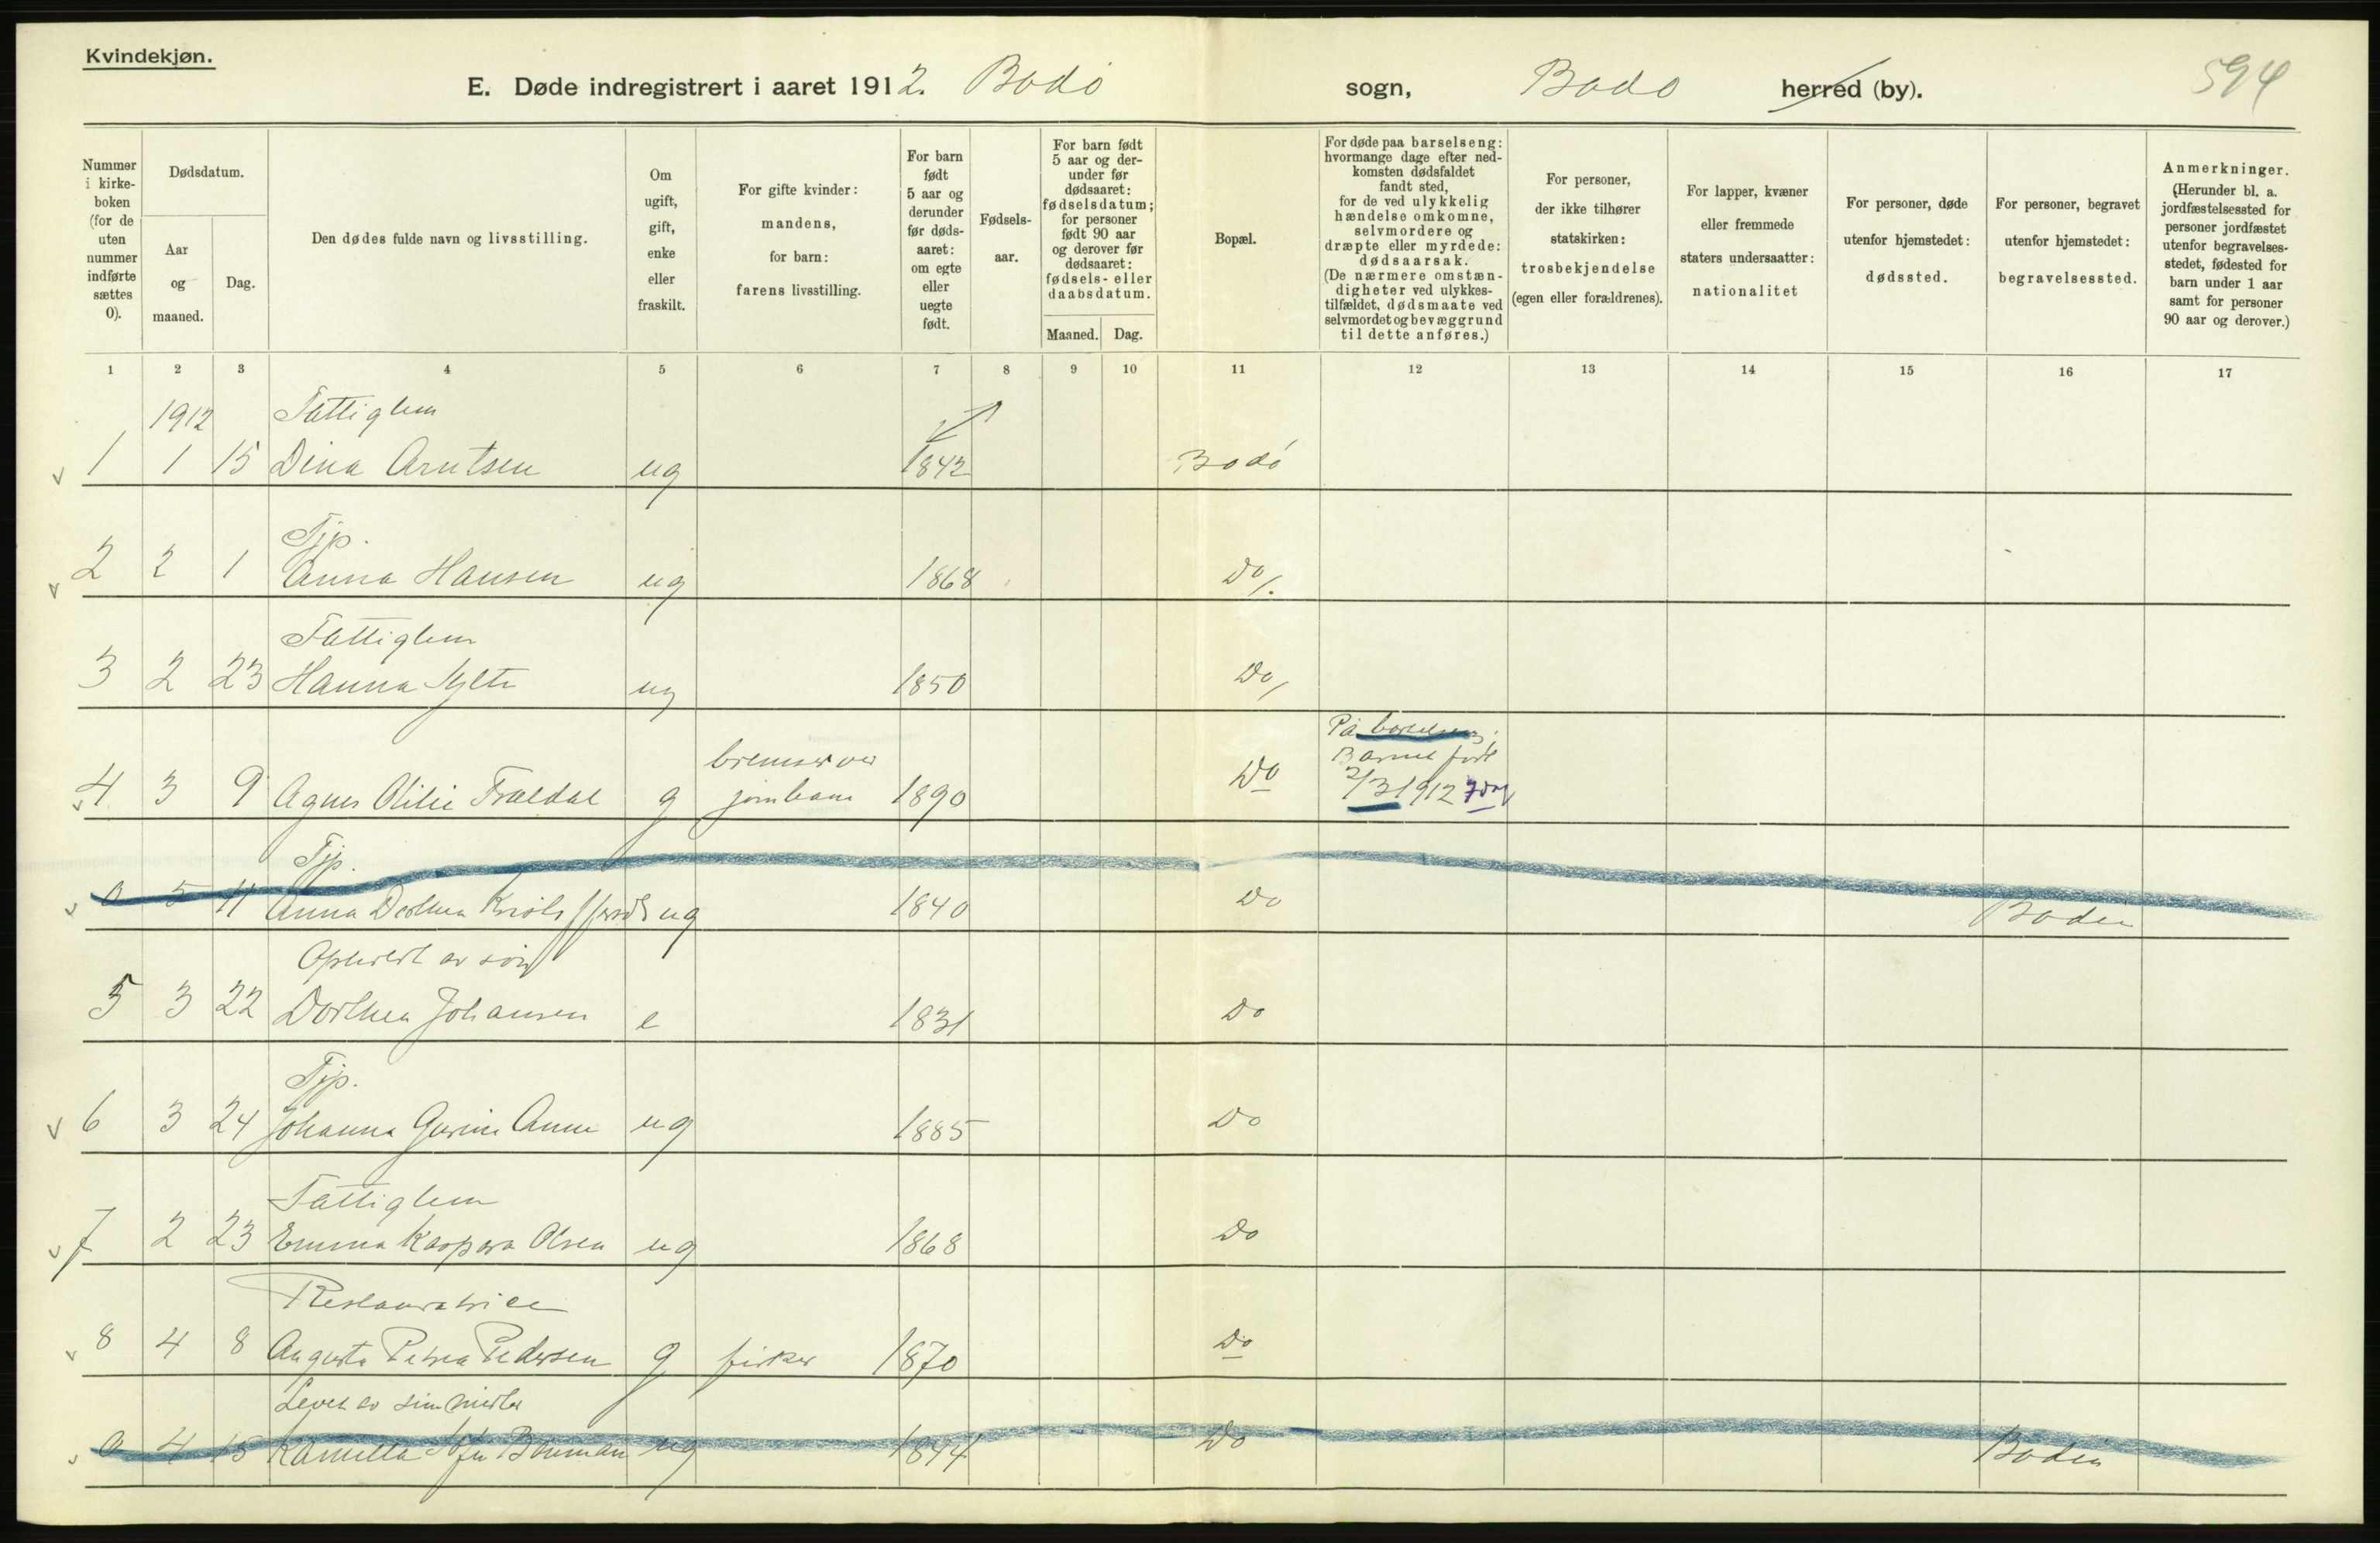 Kvindekjøn.
E. Døde indregistrert i aaret 1912. Bodø sogn, Bodø herred (by). 594
Nummer i kirke-boken (for de uten nummer indførte sættes 0).
Dødsdatum.
Aar og maaned.
Dag.
Den dødes fulde navn og livsstilling.
Om ugift, gift, enke eller fraskilt.
For gifte kvinder: mandens, for barn: farens livsstilling.
For barn født 5 aar og derunder før døds-aaret: om egte eller uegte født.
Fødsels-aar.
For barn født 5 aar og der-under før dødsaaret: fødselsdatum; for personer født 90 aar og derover før dødsaaret: fødsels- eller daabsdatum.
Maaned. Dag.
Bopæl.
For døde paa barselseng: hvormange dage efter ned-komsten dødsfaldet fandt sted, for de ved ulykkelig hændelse omkomne, selvmordere og dræpte eller myrdede: dødsaarsak. (De nærmere omstæn-digheter ved ulykkes-tilfældet, dødsmaate ved selvmordet og bevæggrund til dette anføres.)
For personer, der ikke tilhører statskirken: trosbekjendelse (egen eller forældrenes).
For lapper, kvæner eller fremmede staters undersaatter: nationalitet
For personer, døde utenfor hjemstedet: dødssted.
For personer, begravet utenfor hjemstedet: begravelsessted.
Anmerkninger. (Herunder bl. a. jordfæstelsessted for personer jordfæstet utenfor begravelses-stedet, fødested for barn under 1 aar samt for personer 90 aar og derover.)
1 2 3 4 5 6 7 8 9 10 11 12 13 14 15 16 17
1912 Fattiglem
1 1 15 Dina Arntsen ug 1842 Bodø
Tjp.
2 2 1 Anna Hansen ug 1868 Do
Fattiglem
3 2 23 Hanna ug 1850 Do
På barselseng.
bremser ved Barnet født
4 3 9 Agnes Otilie Fraldal g jernbane 1890 Do 2/3 1912 7 dag
Tjp.
0 5 11 Anna Dorthea ug 1840 Do Bodin
Opholdt av søn
5 3 22 Dorthea Johansen e 1831 Do
Tjp.
6 3 24 Johanna Gurine ug 1885 Do
Fattiglem
7 2 23 Emma Kaspara Olsen ug 1868 Do
Restauratrice
8 4 8 Augusta Petrea Pedersen g fisker 1870 Do
Levet av sine midler
0 4 15 Kamilla ug 1844 Do Bodin